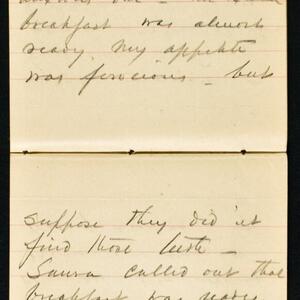 breakfast was almost
ready my appetite
was ferocious — but
suppose they did'nt
find those teeth —
Laura called out that
breakfast was ready